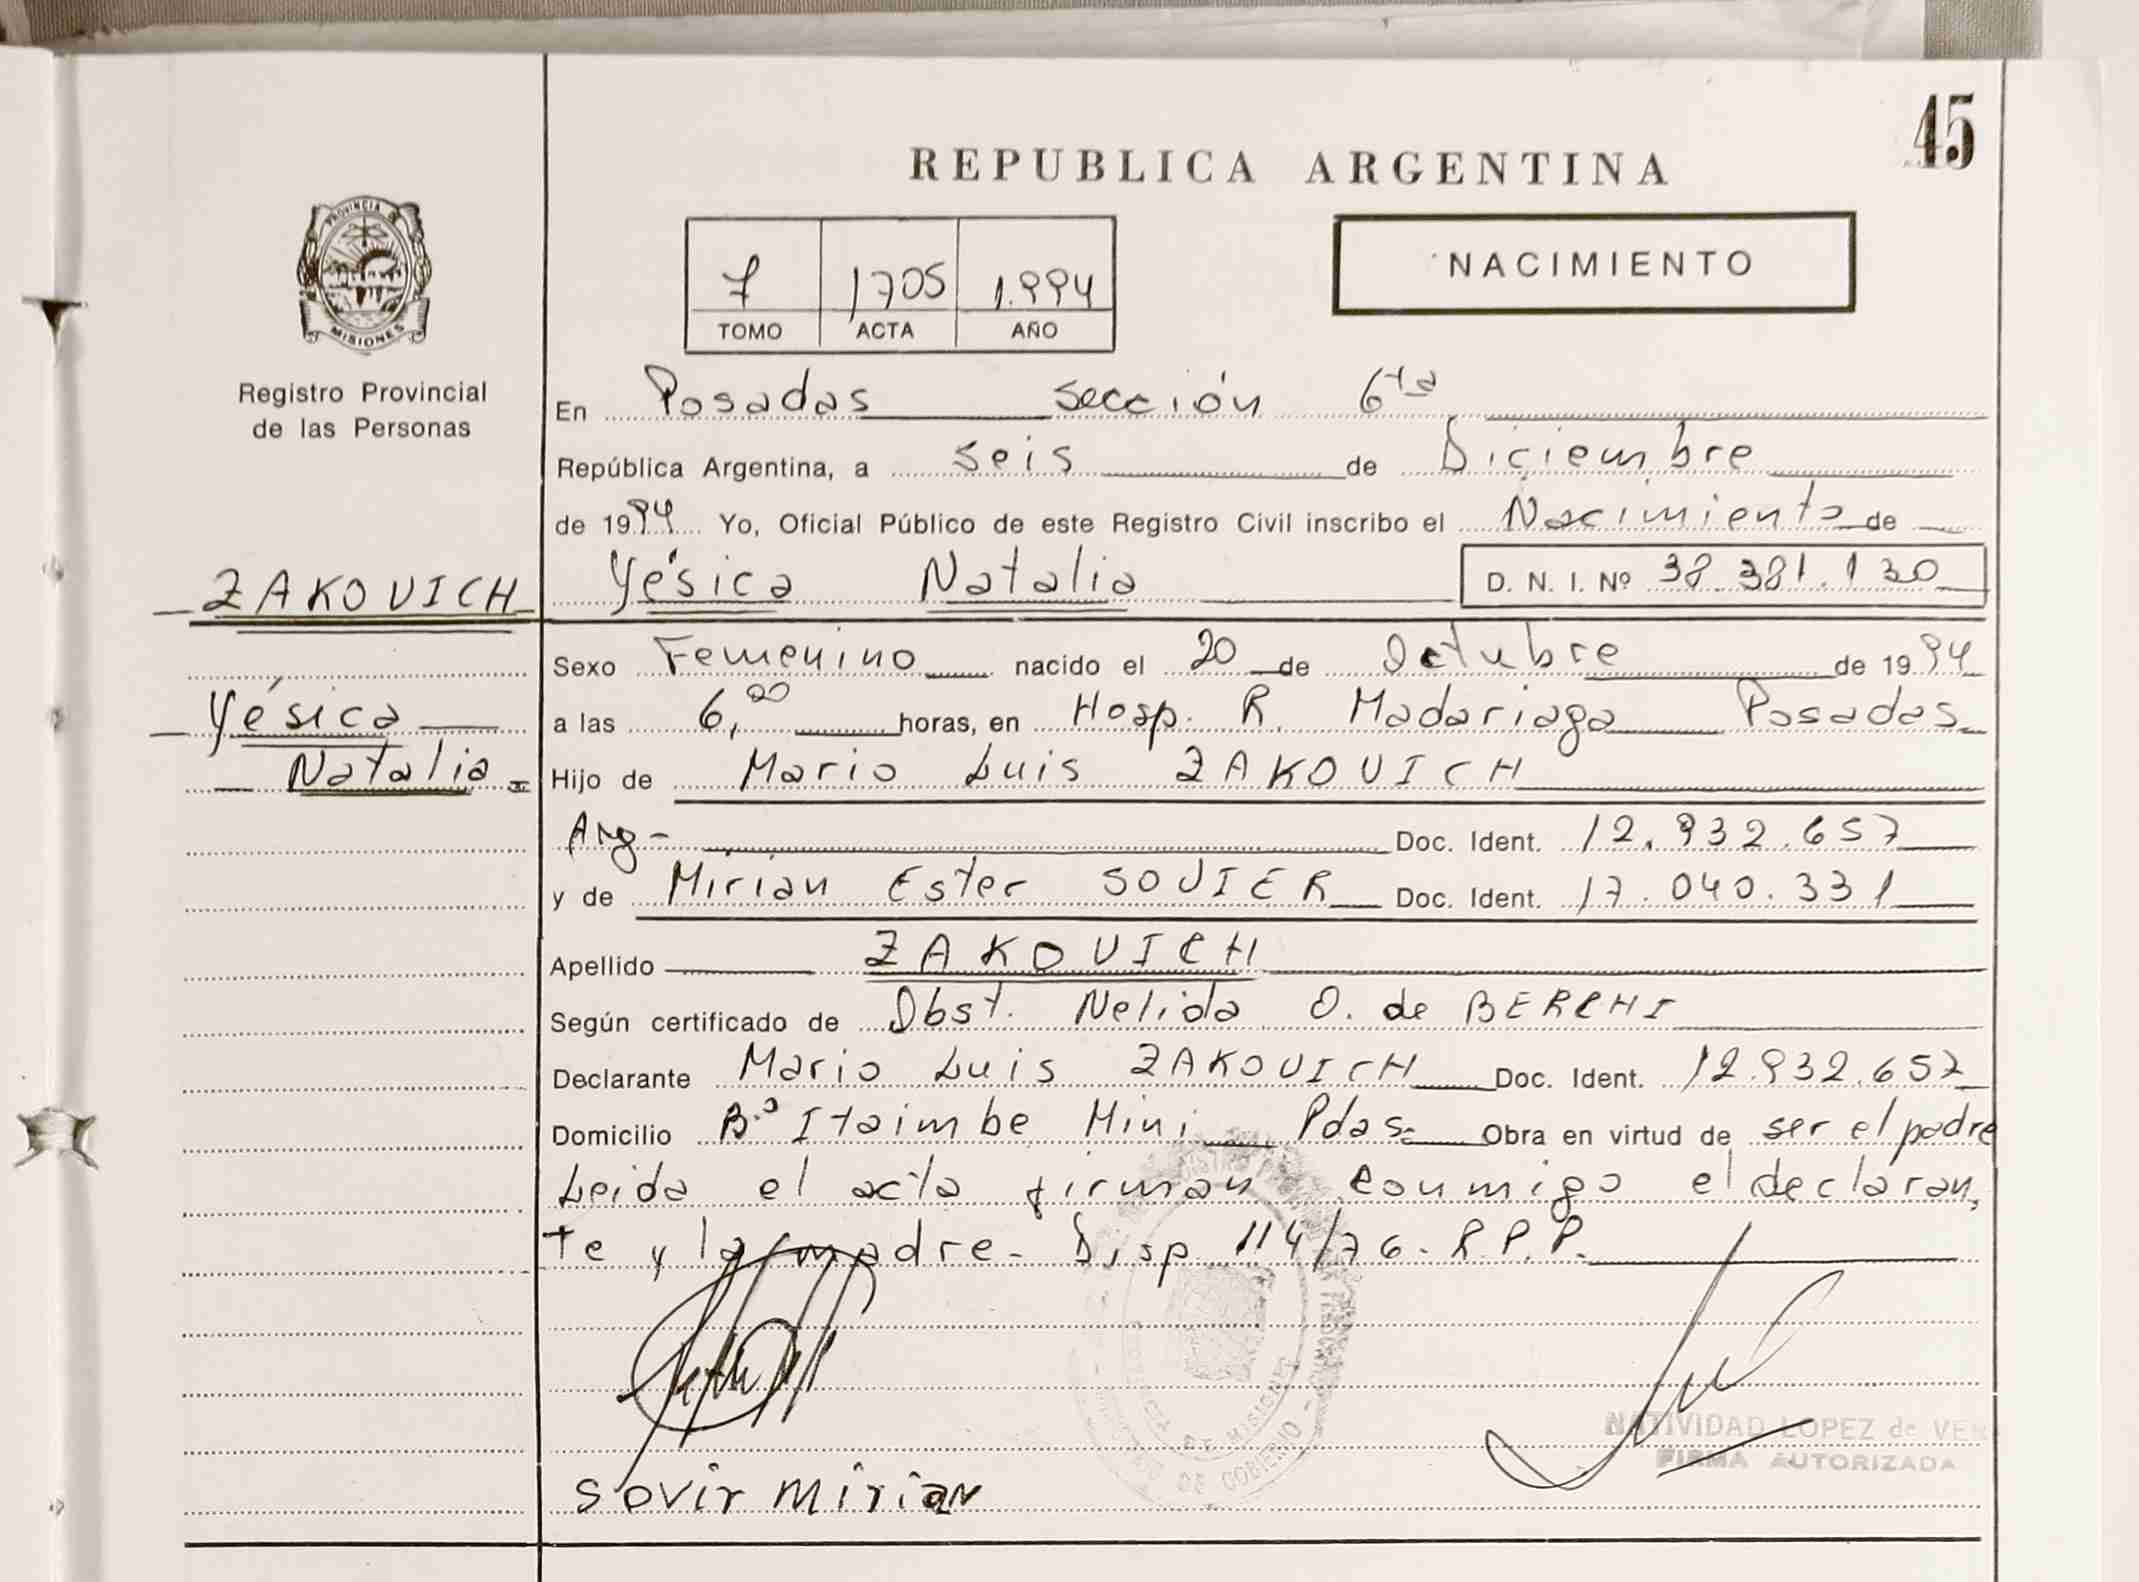 45
REPUBLICA ARGENTINA
PROVINCIA DE
MISIONES
Registro Provincial
de las Personas
7 1705 1.994
TOMO ACTA AÑO
NACIMIENTO
En Posadas sección 6ta
República Argentina, a seis de Diciembre
de 1994 Yo, Oficial Público de este Registro Civil inscribo el Nacimiento de
ZAKOVICH
Yésica Natalia D. N. I. Nº 38.381.130
Yésica
Natalia.
Sexo Femenino nacido el 20 de Octubre de 1994
a las 6,20 horas, en Hosp. R. Madariaga Posadas
Hijo de Mario Luis ZAKOVICH
Arg- Doc. Ident. 12.932.657
y de Mirian Ester SOVIER Doc. Ident. 17.040.331
Apellido ZAKOVICH
Según certificado de Obst. Nelida O. de BERCHI
Declarante Mario Luis ZAKOVICH Doc. Ident. 12.932.657
Domicilio B.º Itaimbe Mini Pdas. Obra en virtud de ser el padre
Leida el acta firman conmigo el declaran,
te y la madre- Disp 114/76. R.P.P.
DE MISIONES
DE GOBIERNO
NATIVIDAD LOPEZ de
FIRMA AUTORIZADA
sovir mirian